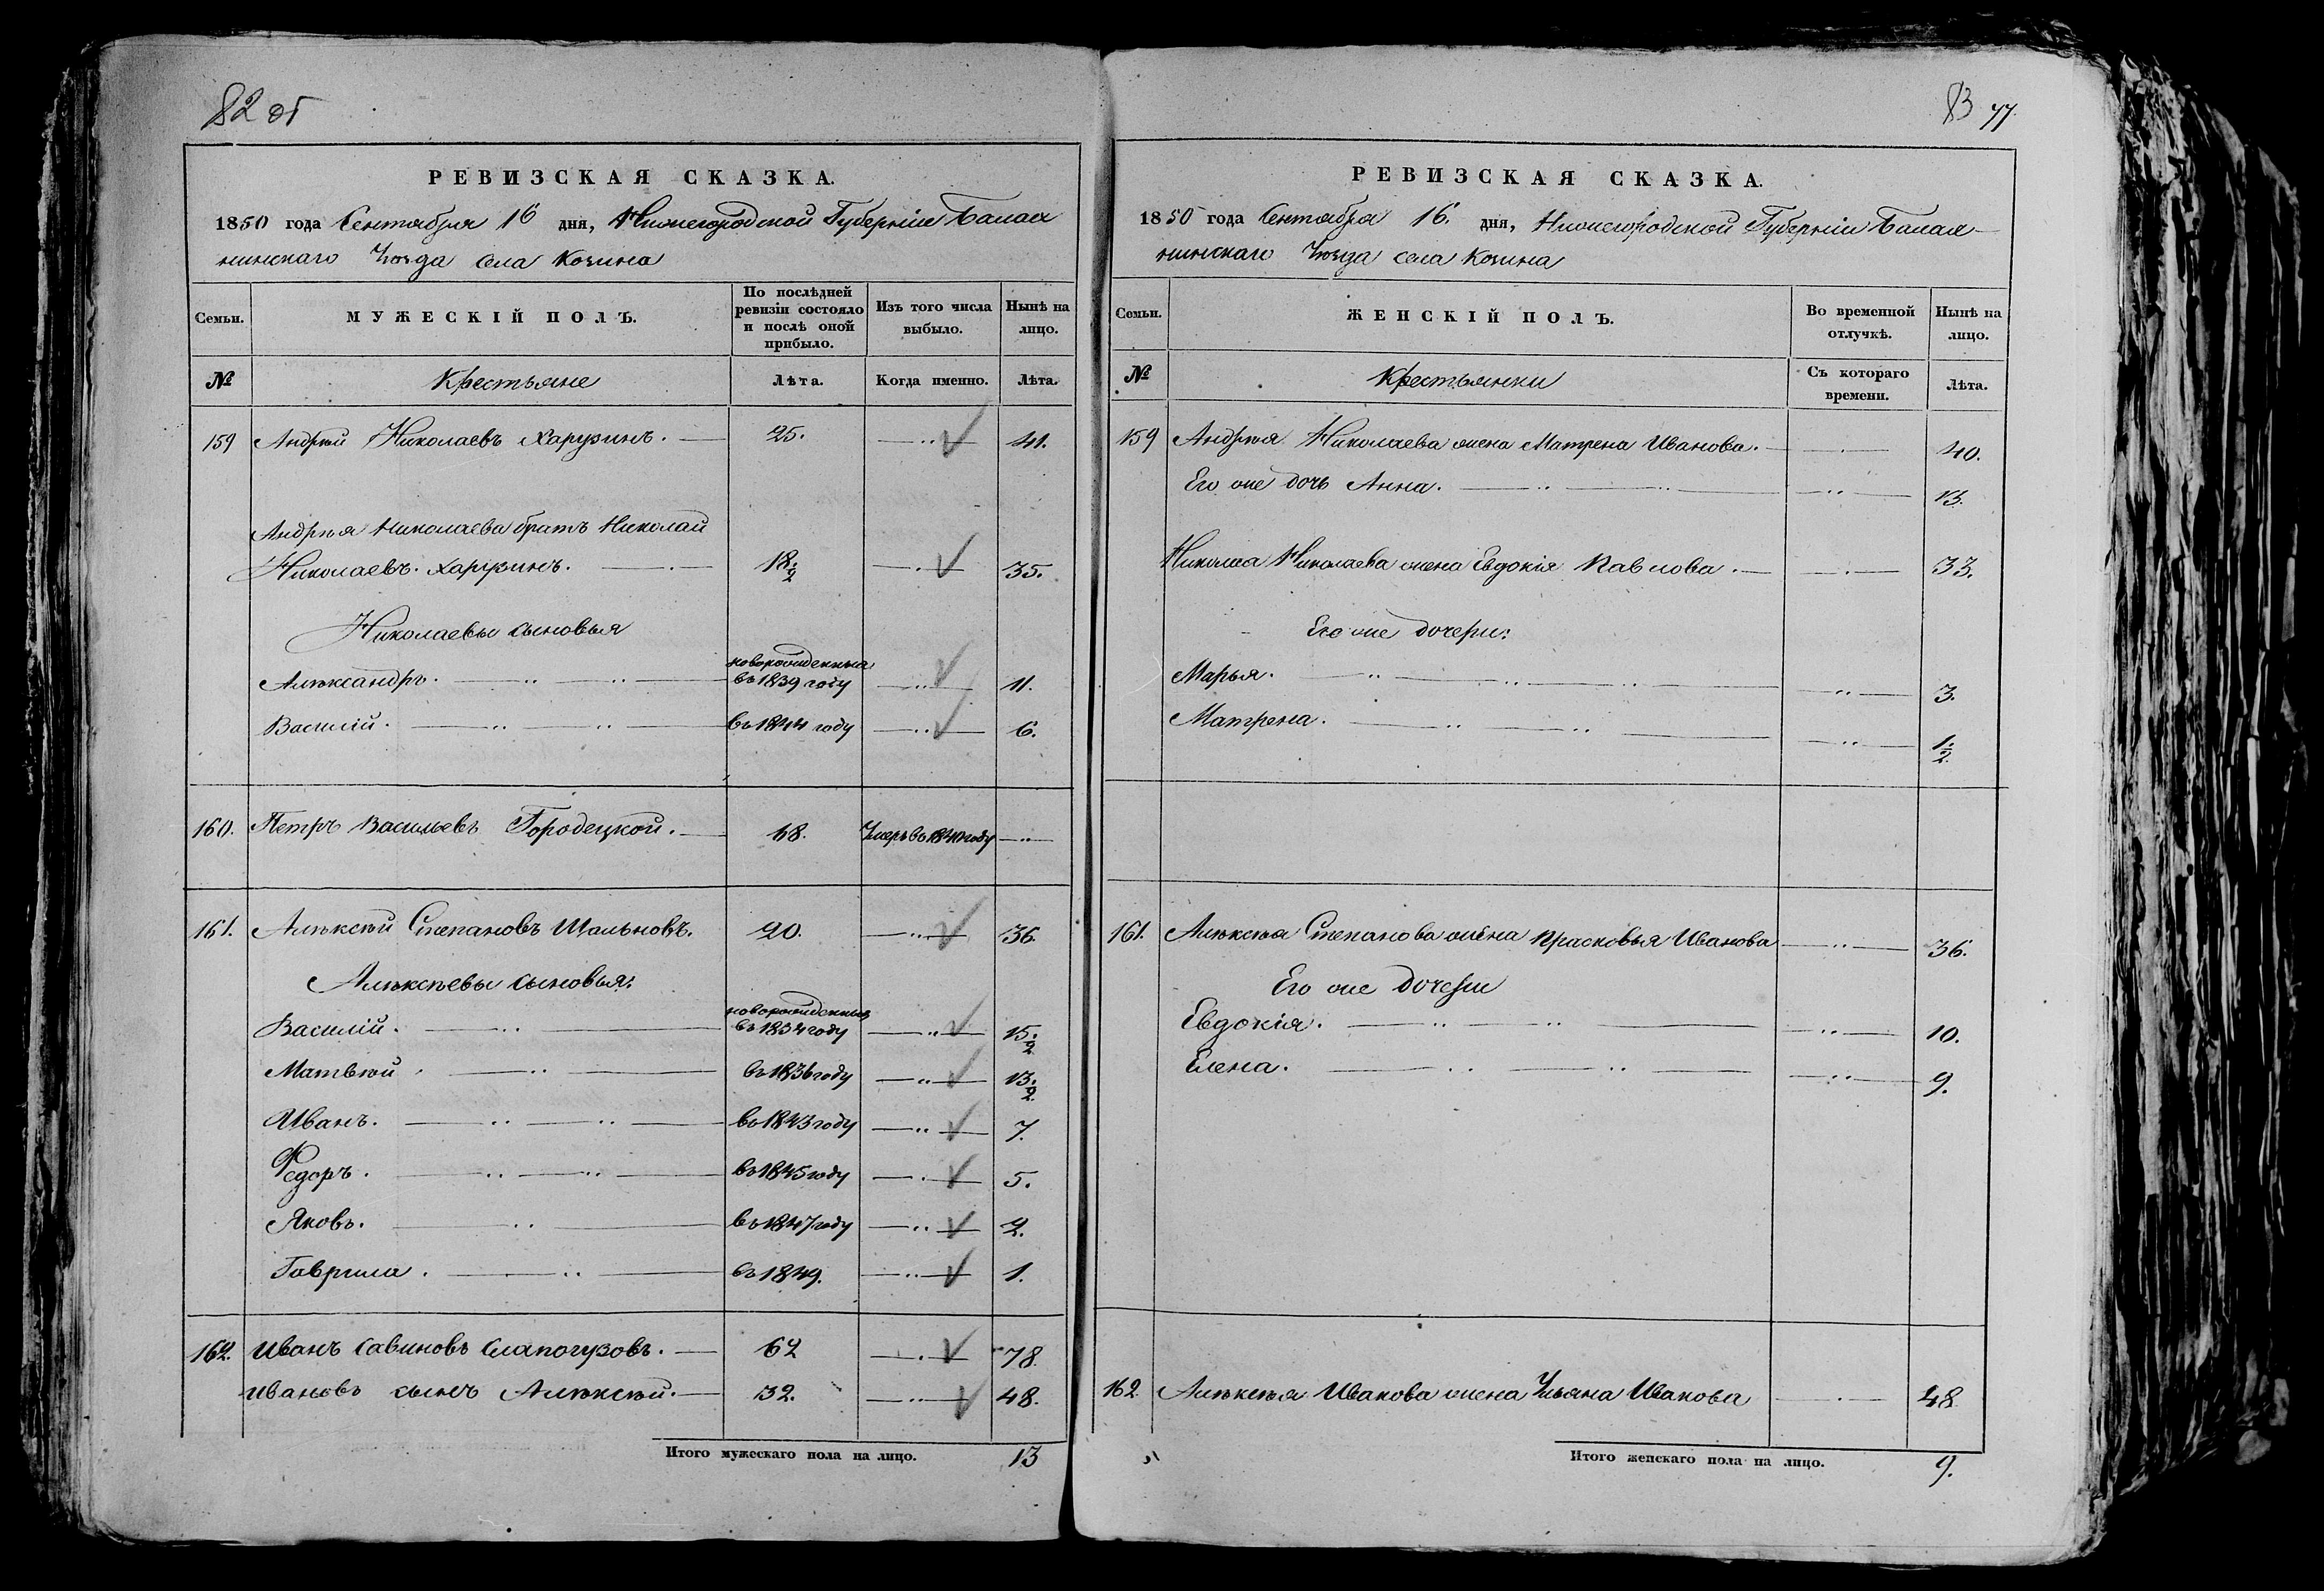 82 об
РЕВИЗСКАЯ СКАЗКА.
1850 года Сентября 16 дня, Нижегородской Губерніи Балах
нинскаго Уѣзда села Козина
Семьи. МУЖЕСКІЙ ПОЛЪ. По послѣдней ревизіи состояло и послѣ оной прибыло. Изъ того числа выбыло. Нынѣ на лицо.
№ Крестьяне Лѣта. Когда именно. Лѣта.
159 Андрѣй Николаевъ Харузинъ. 25. 41.
Андрѣя Николаева братъ Николай
Николаевъ Харузинъ. 18 1/2 35.
Николаевы сыновья
Алѣксандръ. новорожденныя въ 1839 году 11.
Василій. въ 1844 году 6.
160. Петръ Васильевъ Городецкой. 68. Умеръ въ году
161. Алѣксѣй Степановъ Шальновъ. 20. 36.
Алѣксѣевы сыновья:
Василій. новорожденныя въ 1834 году 15 1/2
Матвѣй въ 1836 году 13 1/2
Иванъ. въ 1843 году 7.
Ѳедоръ. въ 1845 году 5.
Яковъ. въ 1847 году 2.
Гаврила. въ 1849. 1.
162. Иванъ Савиновъ Слапогузовъ. 62 78.
Ивановъ сынъ Алѣксѣй. 32. 48.
Итого мужескаго пола на лицо. 13
83 77
РЕВИЗСКАЯ СКАЗКА.
1850 года Сентября 16. дня, Нижегородской Губерніи Балах
нинскаго Уѣзда села Козина
Семьи. ЖЕНСКІЙ ПОЛЪ. Во временной отлучкѣ. Нынѣ на лицо.
№ Крестьянки Съ котораго времени. Лѣта.
159 Андрѣя Николаева жена Матрена Иванова. 40.
Его же дочь Анна. 13.
Николая Николаева жена Евдокія Павлова. 33.
Его же дочери:
Марья. 3.
Матрена. 1 1/2
161. Алѣксѣя Степанова жена Прасковья Иванова 36.
Его же дочери
Евдокія. 10.
Елена. 9.
162. Алѣксѣя Иванова жена Ульяна Иванова 48.
Итого женскаго пола на лицо. 9.